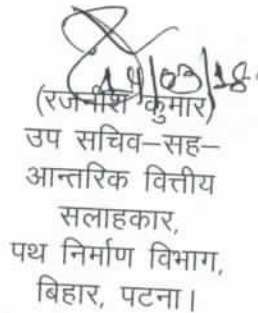 14/03/18
(रजनीश कुमार)
उप सचिव–सह–
आन्तरिक वित्तीय
सलाहकार,
पथ निर्माण विभाग,
बिहार, पटना।